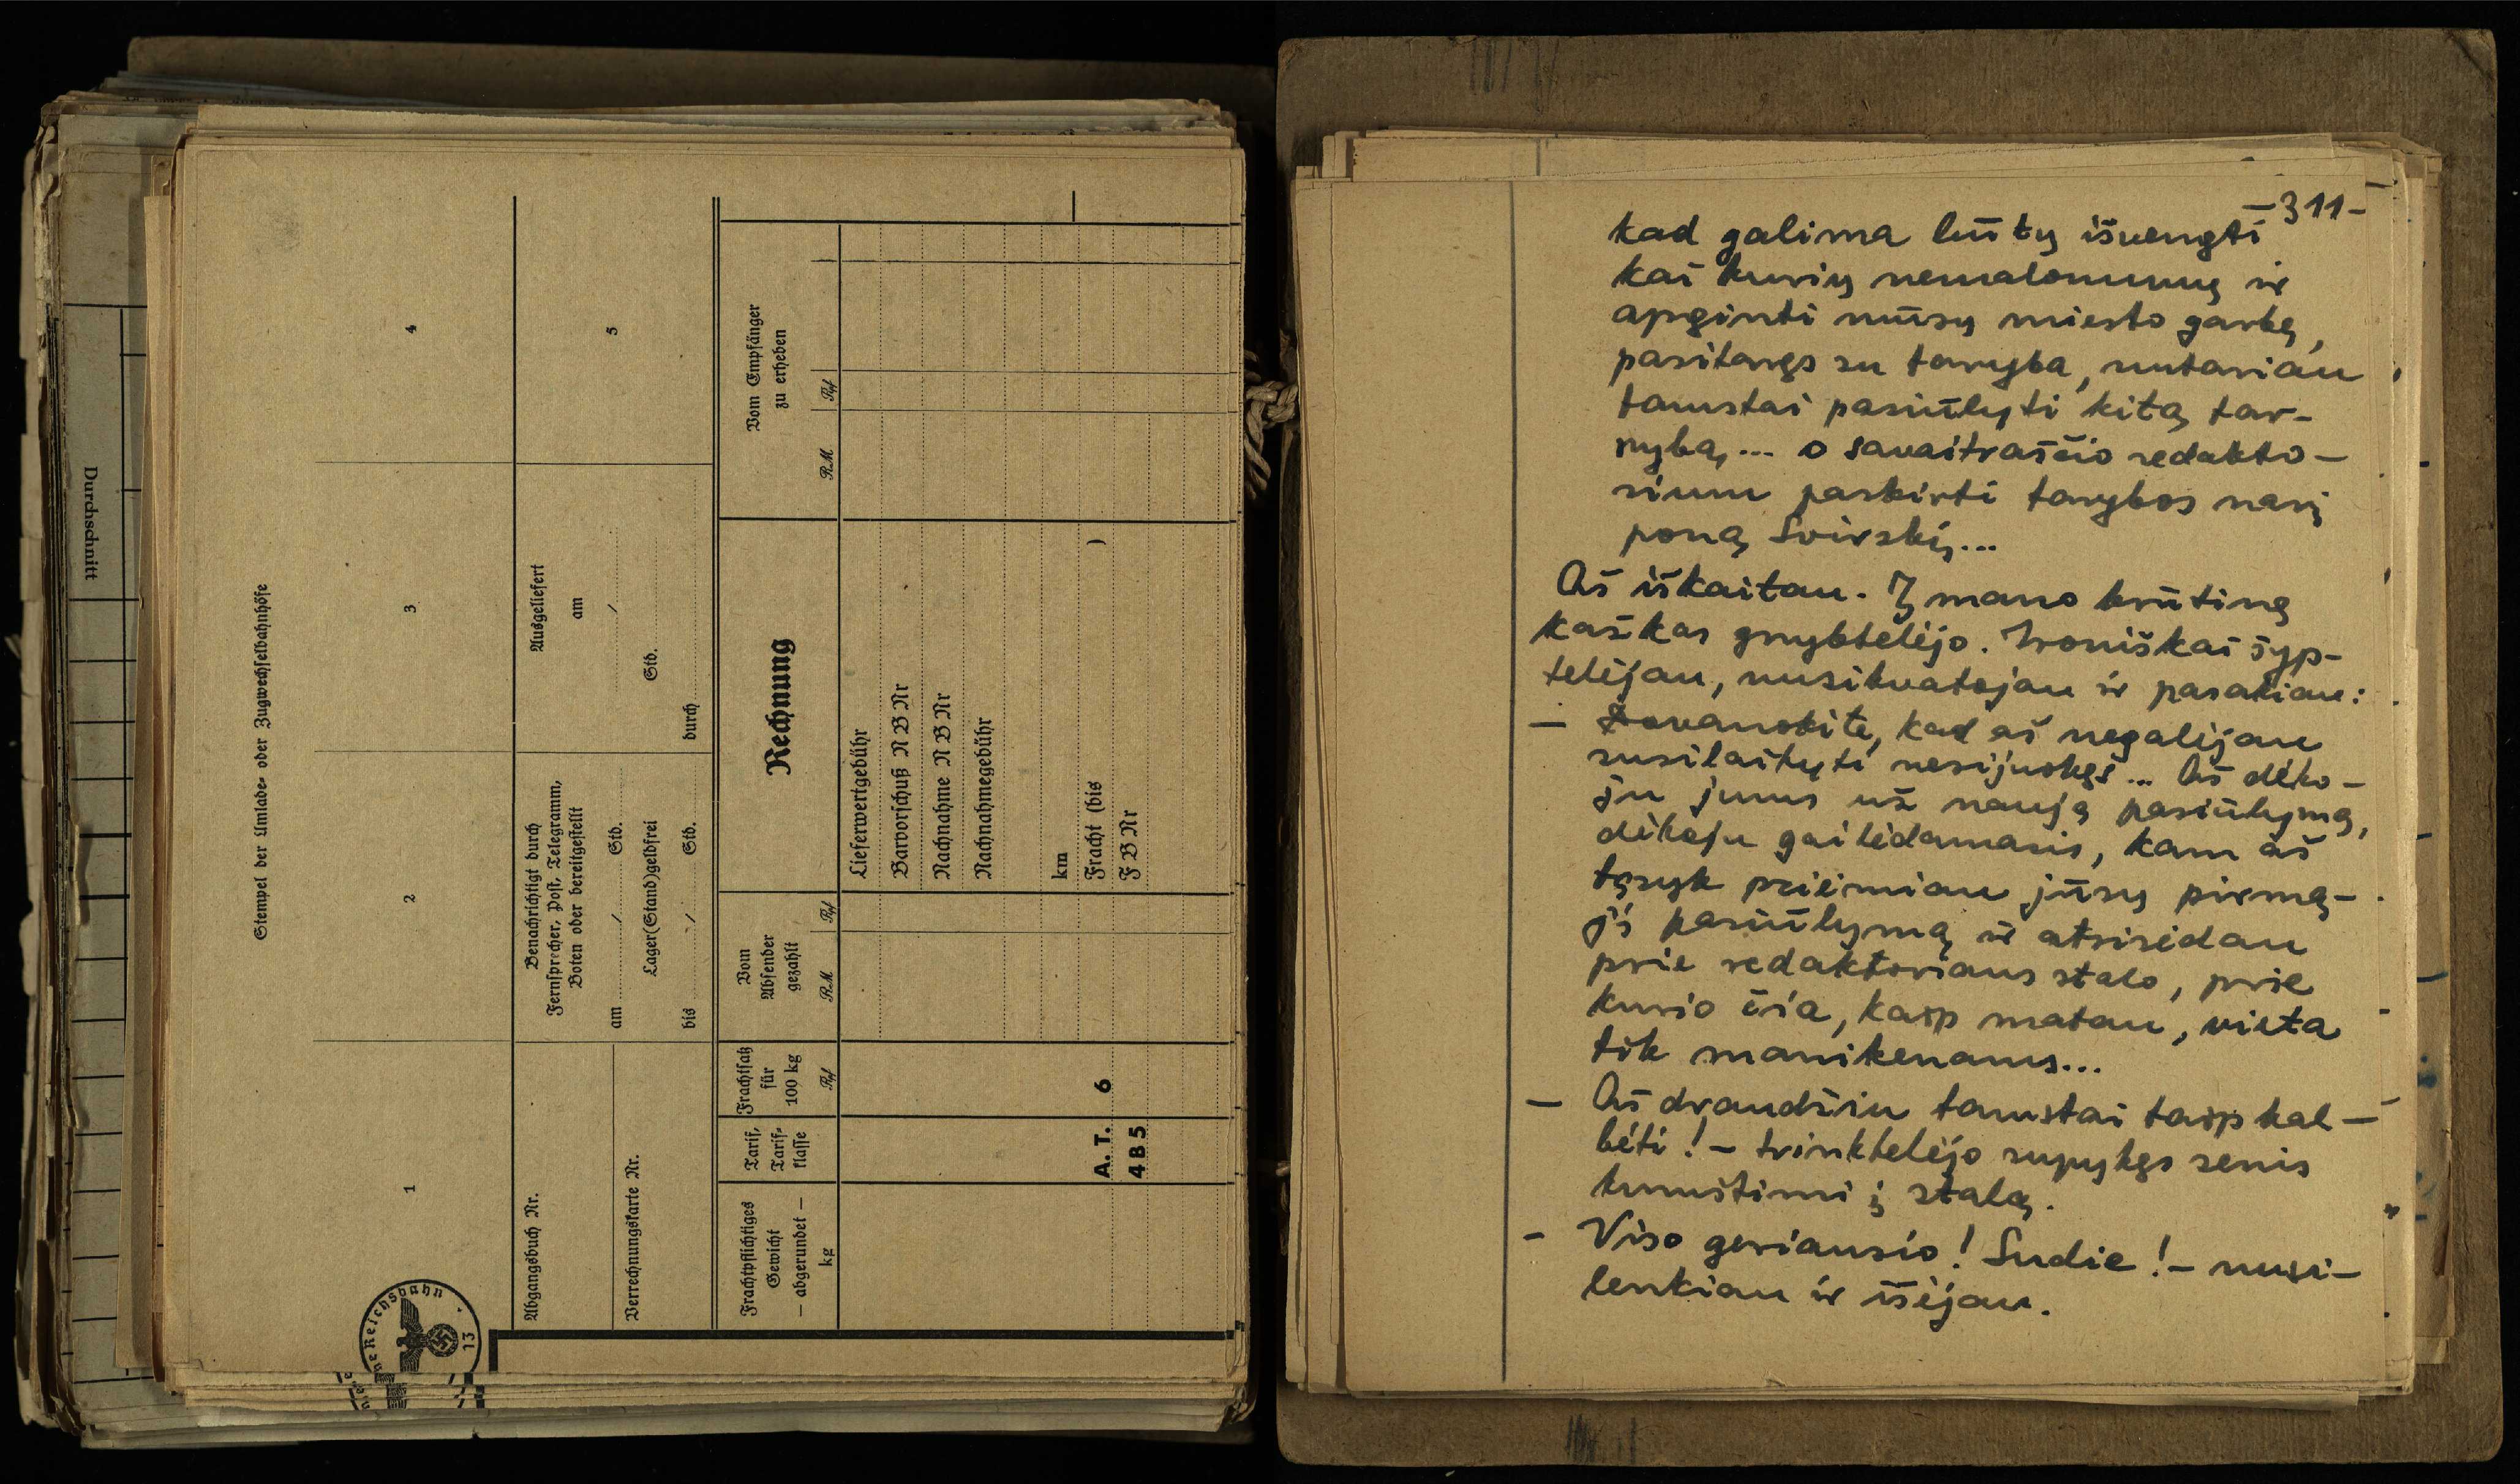 Durchschnitt
Stempel der Umlade- oder Zugwechselbahnhöfe
1
2
3
4
Abgangsbuch Nr.
Verrechnungskarte Nr.
Benachrichtigt durch
Fernsprecher, Post, Telegramm,
Boten oder bereitgestellt
am / Std.
Lager(Stand)geldfrei
bis / Std.
Ausgeliefert
am
/
Std.
durch
5
Frachtpflichtiges
Gewicht
— abgerundet —
kg
Tarif,
Tarif-
klasse
Frachtsatz
für
100 kg
Rpf
Vom
Absender
gezahlt
RM Rpf
Rechnung
Vom Empfänger
zu erheben
RM Rpf
Lieferwertgebühr
Barvorschuß N B Nr
Nachnahme N B Nr
Nachnahmegebühr
km
A. T. 6 Fracht (bis )
4 B 5 F B Nr
Reichsbahn
13
—311—
kad galima būtų išvengti
kai kurių nemalonumų ir
apginti mūsų miesto garbę,
pasitaręs su taryba, nutariau
tamstai pasiūlyti kitą tar-
nybą,... o savaitraščio redakto-
rium paskirti tarybos narį
poną Svirskį...
Aš iškaitau. Į mano krūtinę
kažkas gnybtelėjo. Ironiškai šyp-
telėjau, nusikvatojau ir pasakiau:
— Dovanokite, kad aš negalėjau
susilaikyti nesijuokęs... Aš dėko-
ju jums už naują pasiūlymą,
dėkoju gailėdamasis, kam aš
tąsyk priėmiau jūsų pirmą-
jį pasiūlymą ir atsisėdau
prie redaktoriaus stalo, prie
kurio čia, kaip matau, vieta
tik manikenams...
— Aš draudžiu tamstai taip kal-
bėti! — trinktelėjo supykęs senis
kumštimi į stalą.
— Viso geriausio! Sudie! — nusi-
lenkiau ir išėjau.